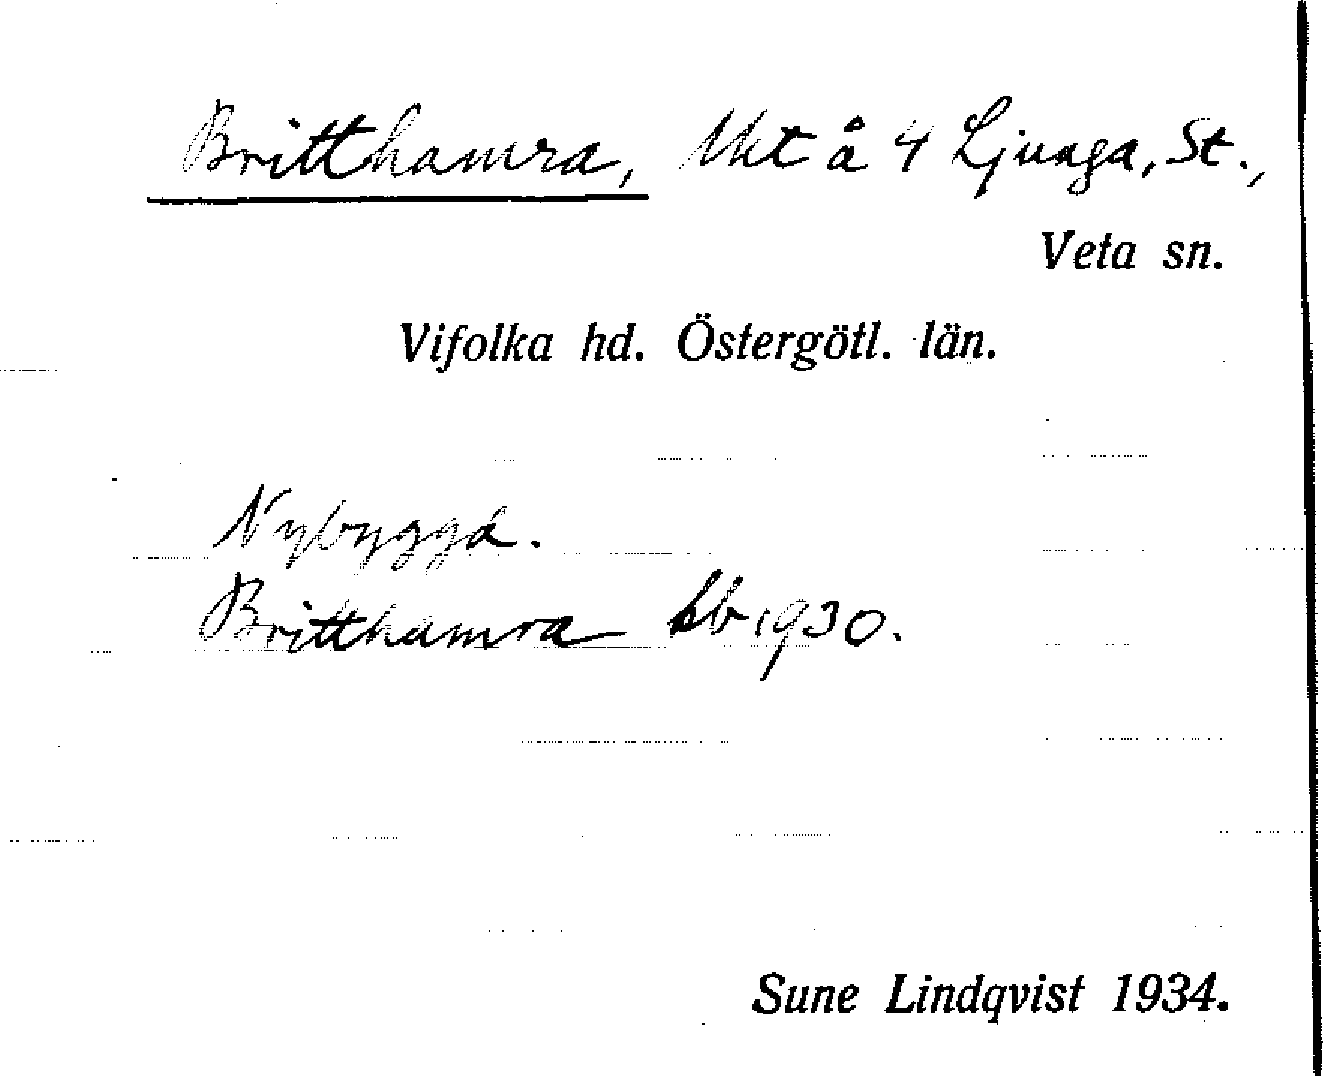 Britthamra, Ukt å 4 Ljunga, St.,
Veta sn.
Vifolka hd. Östergötl. län.
Nybyggd.
Britthamra Lb 1930.
Sune Lindqvist 1934.